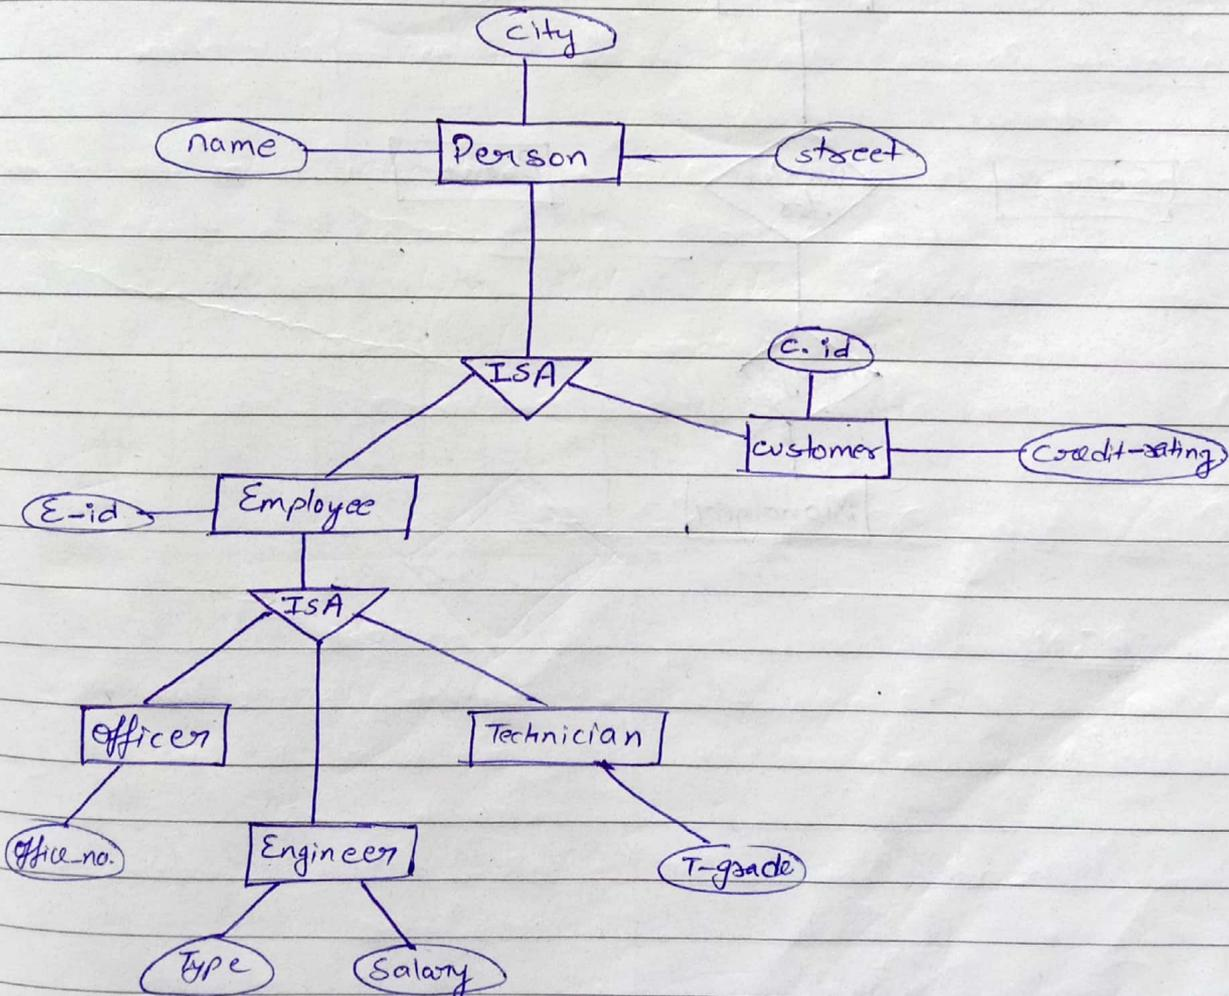 city
name
Person
street
ISA
c. id
customer
credit-rating
E-id
Employee
ISA
Officer
Technician
Office-no.
Engineer
T-grade
Type
Salary